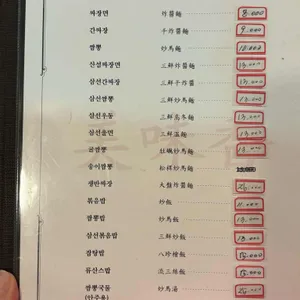 짜장면 炸醬麵 8.000
간짜장 干炸醬麵 9.000
짬뽕 炒馬麵 10.000
삼선짜장면 三鮮炸醬麵 13.000
삼선간짜장 三鮮干炸醬 13.000
삼선짬뽕 三鮮炒馬麵 13.000
삼선우동 三鮮烏冬麵 13.000
삼선울면 三鮮溫麵 13.000
굴짬뽕 牡蠣炒馬麵 13.000
송이짬뽕 松栮炒馬麵
쟁반짜장 大盤炸醬麵
볶음밥 炒飯
짬뽕밥 炒馬飯 13.000
삼선볶음밥 三鮮炒飯 13.000
잡탕밥 八珍燴飯
류산스밥 溜三絲飯
짬뽕국물 炒馬湯
(안주용)